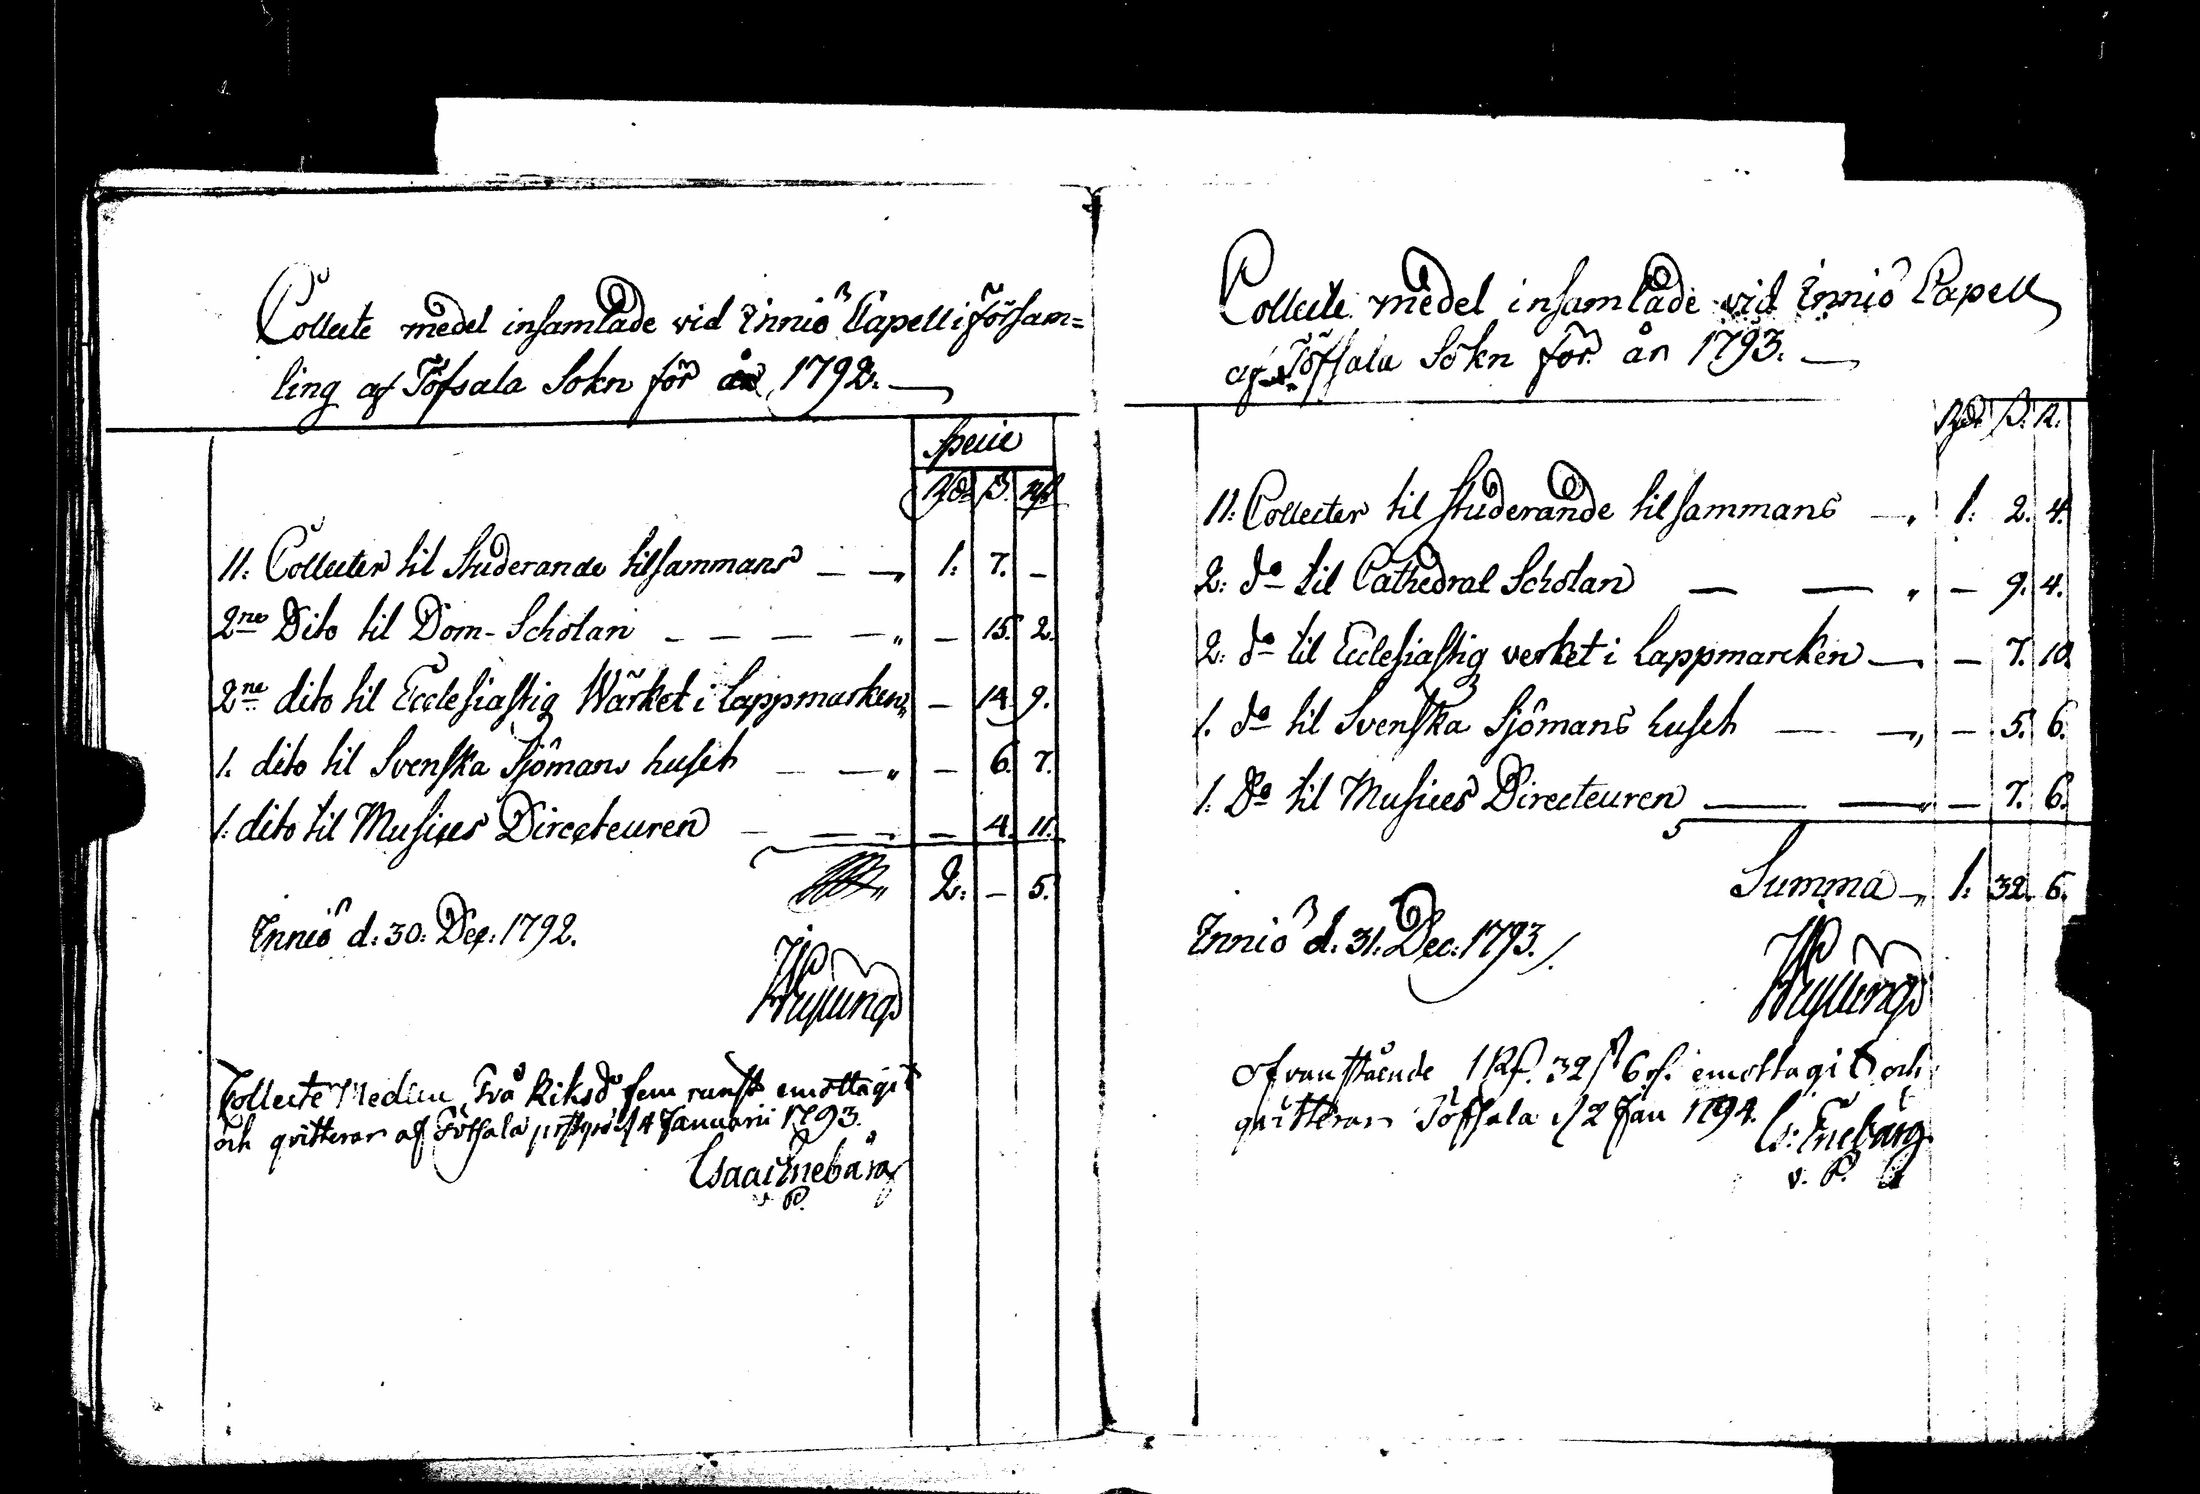 Collecte medel insamlade vid Inniö Capell i Försam=
ling af Töfsala Sokn för år 1792.
Specie
Rd. ß. rst
11: Collecter til Studerande tilsammans — — „ 1: 7. –
2ne Dito til Dom-Scholan — — — — „ – 15. 2.
2ne dito til Ecclesiastig Wärket i Lappmarken „ – 14. 9.
1. dito til Svenska Sjömans huset — — „ – 6. 7.
1. dito til Musices Directeuren — — — – 4. 11.
2. – 5.
Inniö d: 30: Dec: 1792.
Collecte Medlen Två Riksd fem runst emottagit
och qvitterar af Töfsala 4 Januarii 1793.
Isaac Enebärg
v. P.
Collecte medel insamlade vid Inniö Capell
af Töfsala Sokn för år 1793.
Rd. ß. R.
11: Collecter til Studerande tilsammans — „ 1: 2. 4.
2: do til Cathedral Scholan — — „ – 9. 4.
2: do til Ecclesiastig verket i Lappmarcken — – 7. 10.
1. do til Svenska Sjömans huset — — „ – 5. 6.
1: Do til Musices Directeuren — — „ – 7. 6.
Summa „ 1: 32. 6.
Inniö d. 31. Dec: 1793.
Ofvanstående 1 Rd. 32 ß 6 r. emottagit och
qvitterar Töfsala d 2 Jan 1794.
Is: Enebärg
v. P.